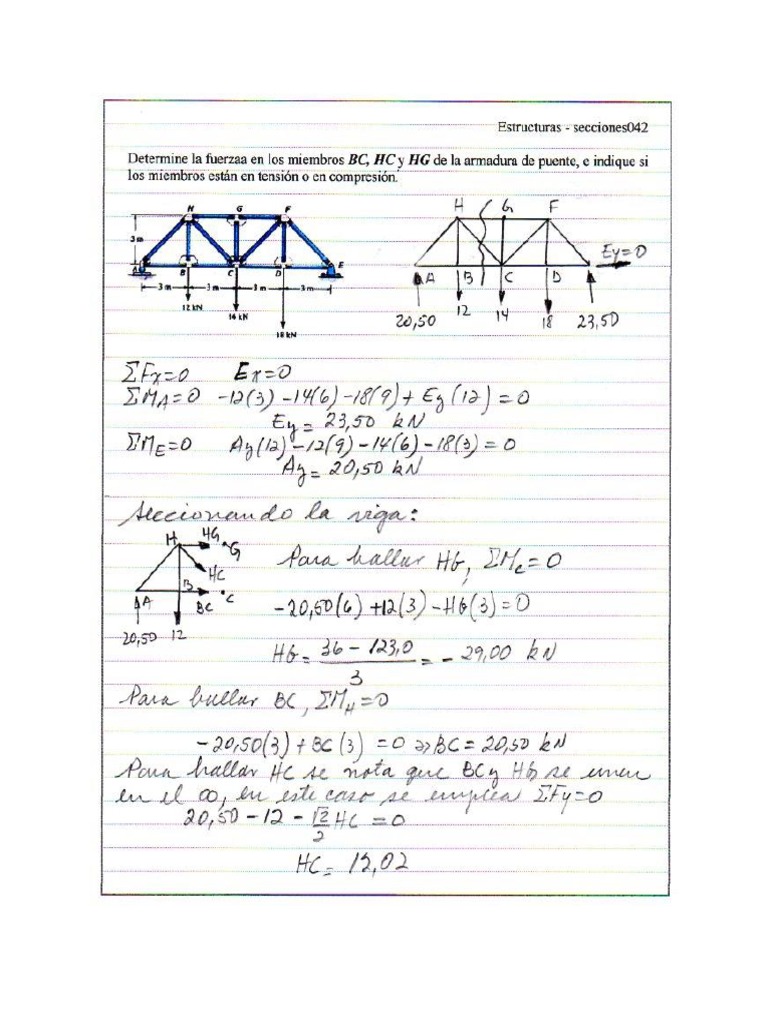 Estructuras - secciones042
Determine la fuerzaa en los miembros BC, HC y HG de la armadura de puente, e indique si
los miembros están en tensión o en compresión.
H G F
3 m
A B C D E
3 m 3 m 3 m 3 m
12 kN
14 kN
18 kN
H G F
Ey=0
A B C D
20,50 12 14 18 23,50
ΣFx=0 Ex=0
ΣMA=0 -12(3)-14(6)-18(9)+Ey(12)=0
Ey=23,50 kN
ΣME=0 Ay(12)-12(9)-14(6)-18(3)=0
Ay=20,50 kN
Seccionando la viga:
H HG G
HC
A B BC C
20,50 12
Para hallar HG, ΣMc=0
-20,50(6)+12(3)-HG(3)=0
HG= 36-123,0 / 3 = -29,00 kN
Para hallar BC, ΣMH=0
-20,50(3)+BC(3)=0 ⇒ BC=20,50 kN
Para hallar HC se nota que BC y HG se unen
en el ∞, en este caso se emplea ΣFy=0
20,50-12-√2/2 HC=0
HC=12,02